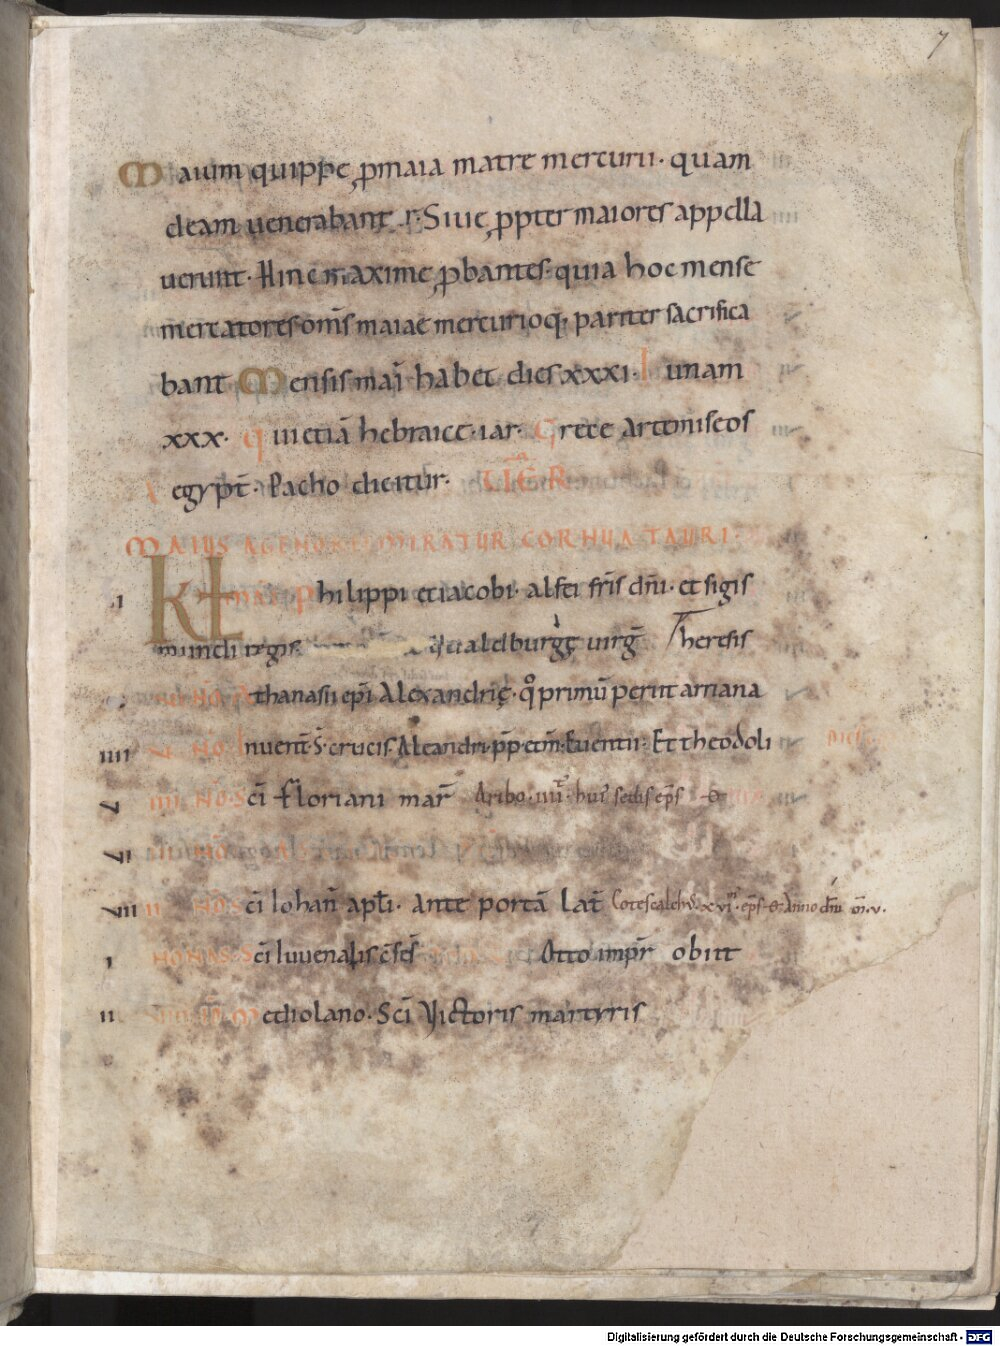 7
Maium quippe ꝓ maia matre mercurii· quam
deam uenerabant ·r· Siue ꝓpter maiores appella
uerunt· Hinc maxime ꝓbantes· quia hoc mense
mercatores om̄s maiae mercurioq; pariter sacrifica
bant Mensis maī habet dies xxxi· Lunam
xxx· Qui etiā hebraice· iar· Grece Artemiseos
egypt̄· Pacho dicitur·
MAIUS AGENOREI MIRATUR CORNUA TAURI·
ı KL MAI Philippi et iacobi· alfei fr̄is dn̄i· et sigis
mundi regis Vualdburgę uirḡ Theresis
NO Athanasii ep̄i Alexandrię· qͦ primū periit arriana
ıııı V NO Inuent̄ S· crucis Aleandri p̄p̄ et m̄· Euentii· Et theodoli
V IIII NO Sc̄i Floriani mar̄ Aribo· iiii· hui' sedis ep̄s
VI
VIII II NO Sc̄i Iohan̄ apt̄i· Ante portā Lat̄ Gotescalch' xvi· ep̄s Anno dn̄i ō· v·
ı NONAS Sc̄i Iuuenalis c̄fes̄ Otto imp̄r obiit
ıı Mediolano· Sc̄i Victoris martyris
Digitalisierung gefördert durch die Deutsche Forschungsgemeinschaft - DFG